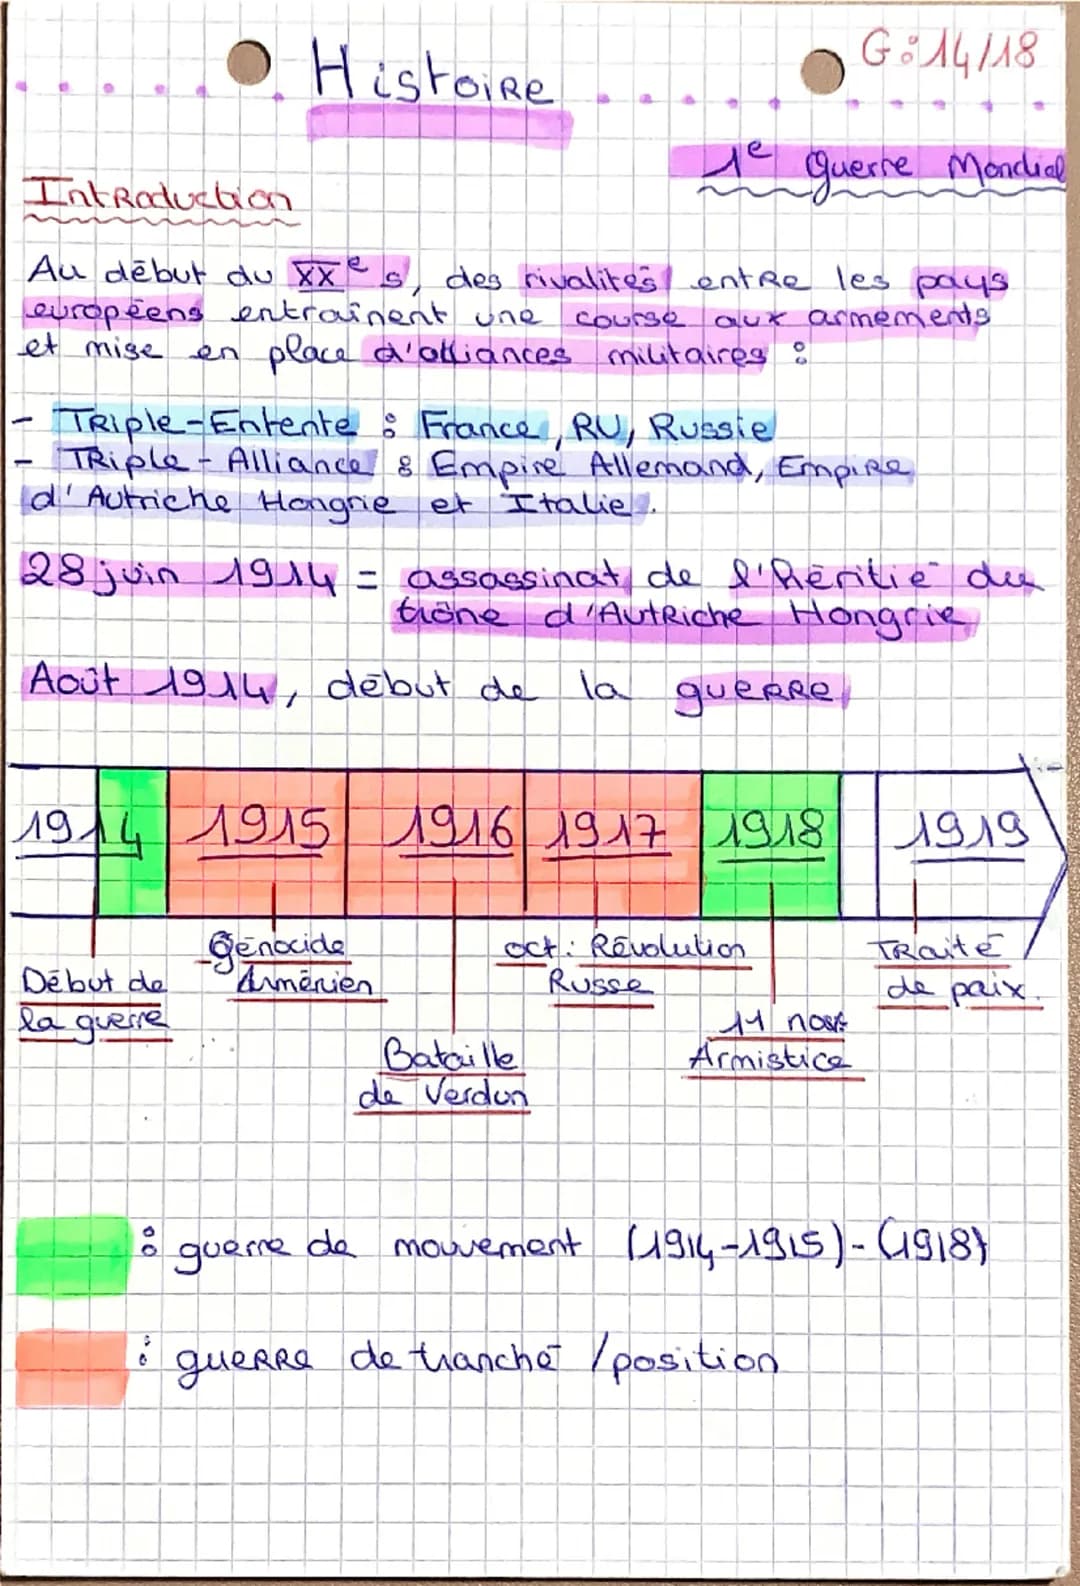 Histoire
G:14/18
1e guerre Mondial
Introduction
Au début du XXe s, des rivalités entre les pays
européens entraînent une course aux armements
et mise en place d'alliances militaires :
- Triple-Entente : France, RU, Russie
- Triple-Alliance : Empire Allemand, Empire
d'Autriche Hongrie et Italie.
28 juin 1914 = assassinat de l'héritié du
trône d'Autriche Hongrie
Août 1914, début de la guerre
1914 1915 1916 1917 1918 1919
Début de
la guerre
Génocide
Arménien
Bataille
de Verdun
oct: Révolution
Russe
11 nov
Armistice
Traité
de paix.
: guerre de mouvement (1914-1915)-(1918)
: guerre de tranché /position